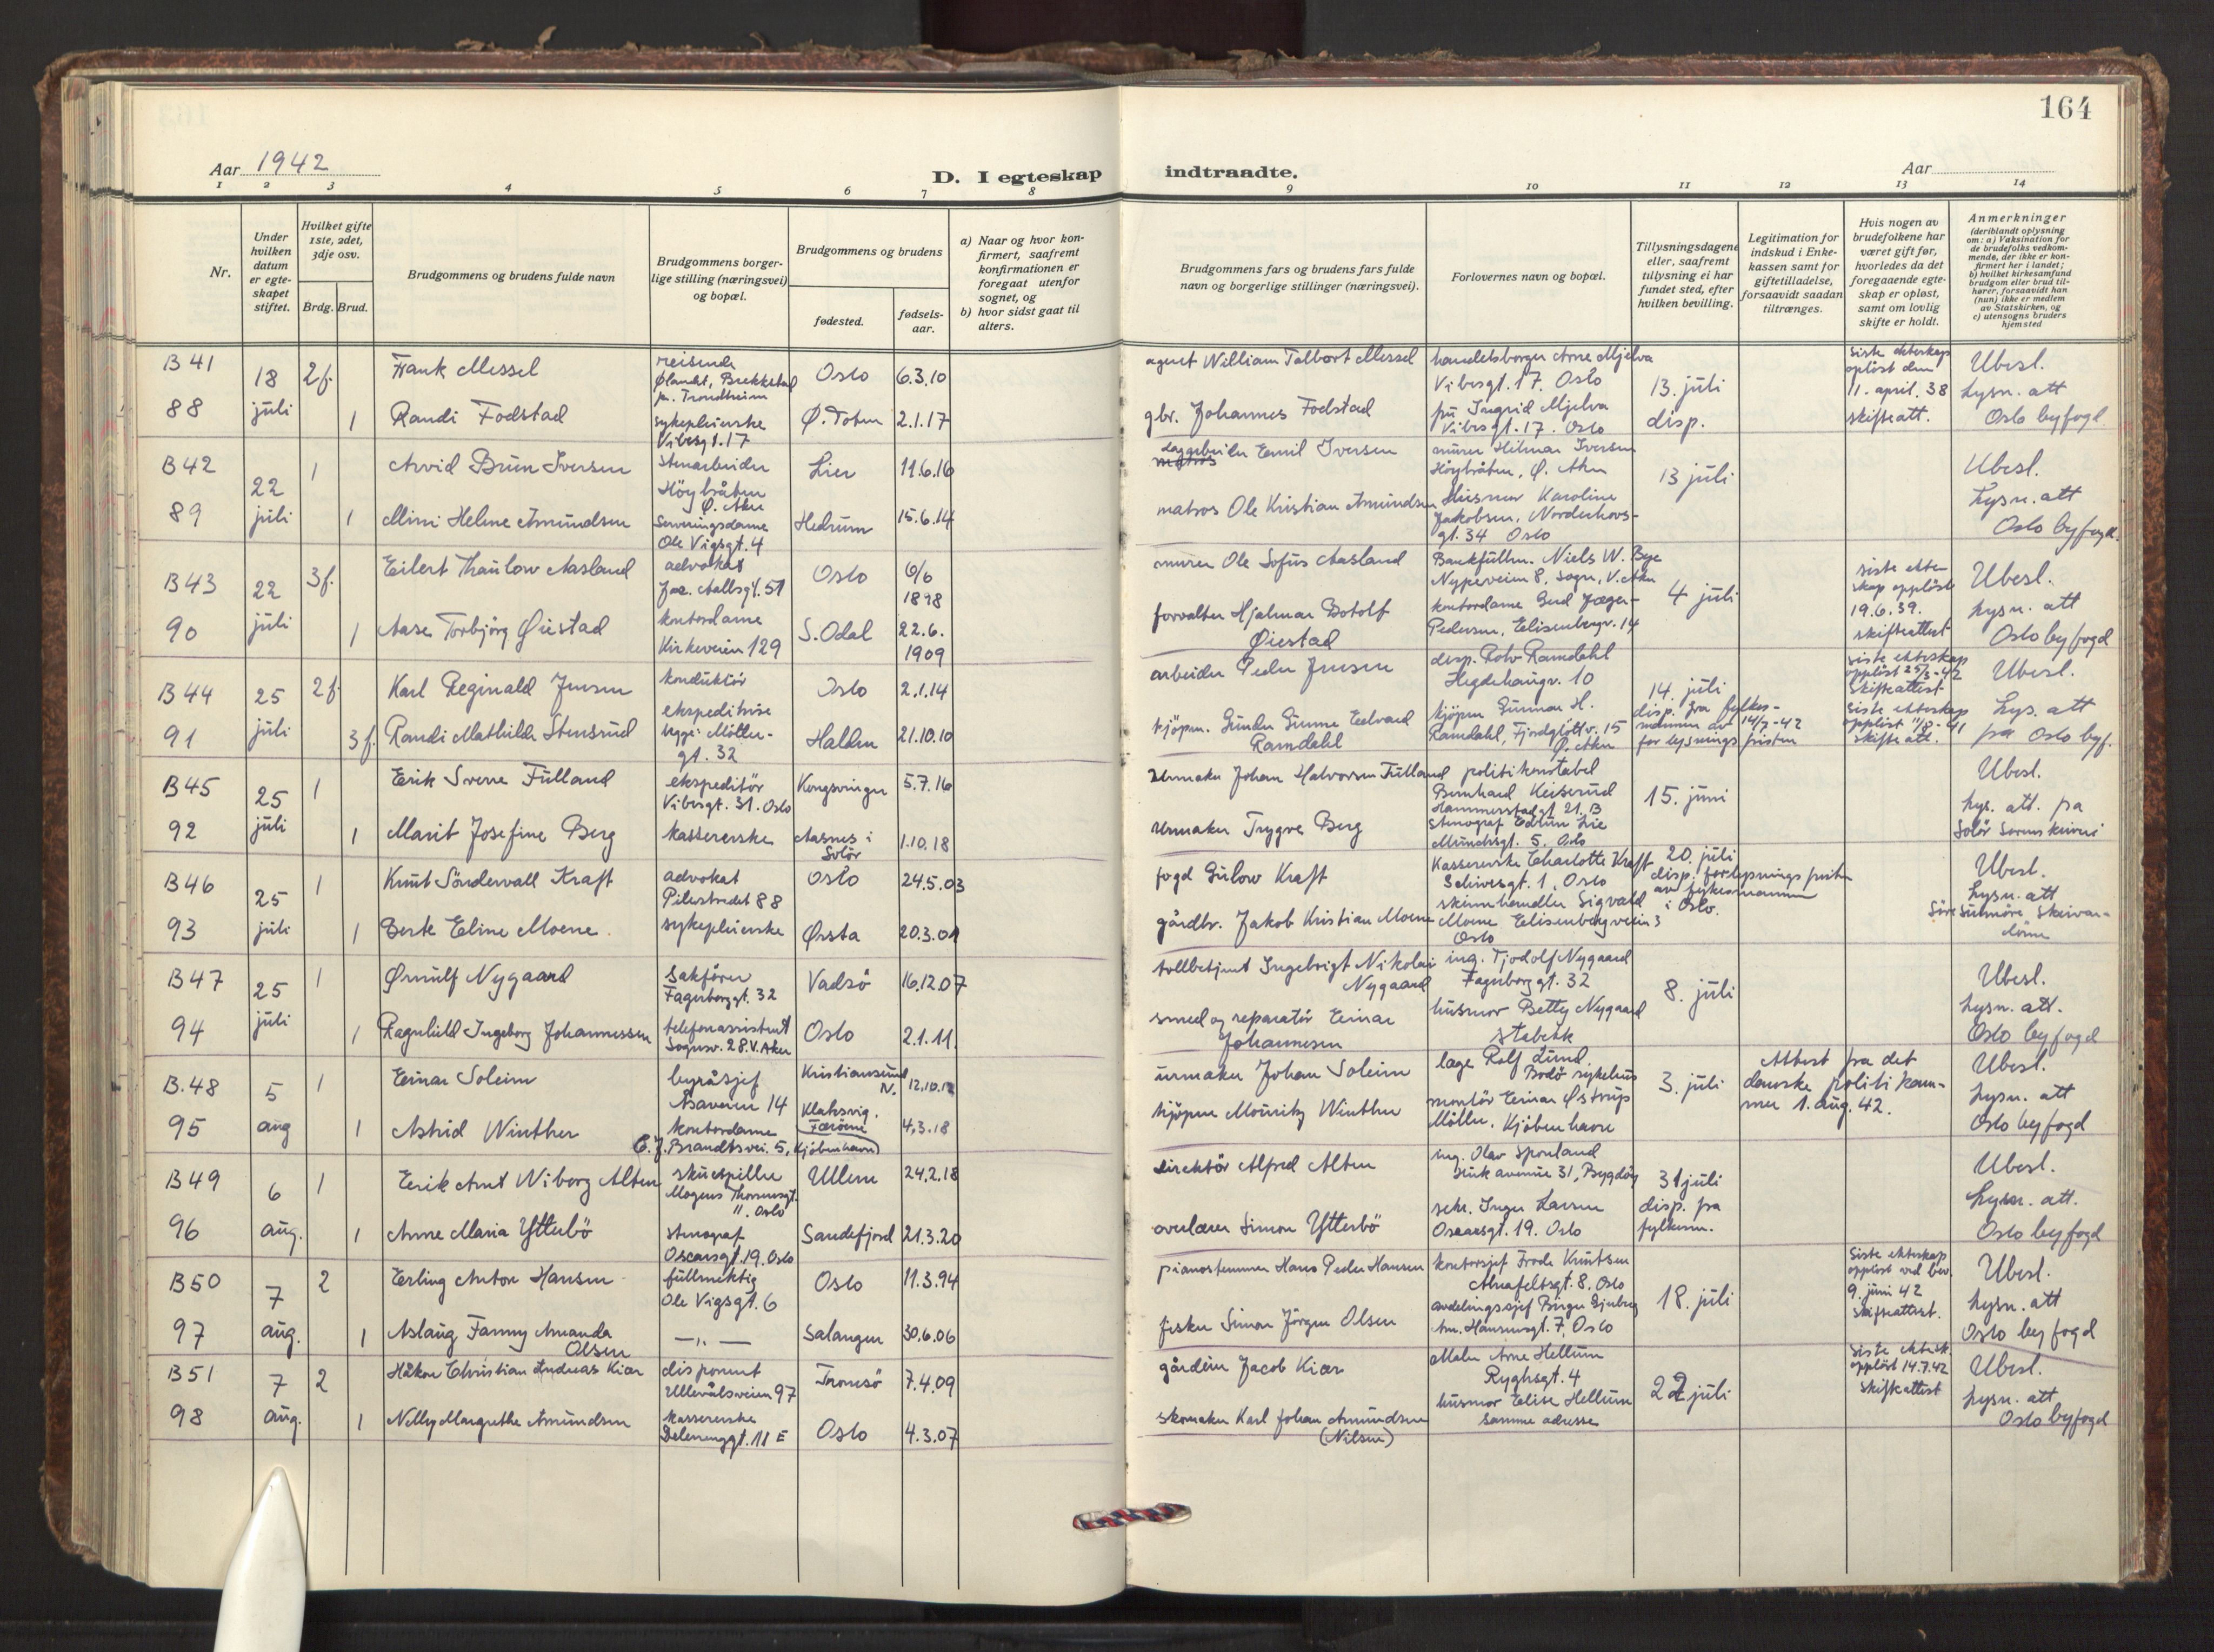 164
Aar 1942
D. I egteskap indtraadte.
Aar
1 2 3 4 5 6 7 8 9 10 11 12 13 14
Nr.
Under hvilken datum er egteskapet stiftet.
Hvilket gifte 1ste, 2det, 3dje osv.
Brdg. Brud.
Brudgommens og brudens fulde navn
Brudgommens borgerlige stilling (næringsvei) og bopæl.
Brudgommens og brudens
fødested.
fødselsaar.
a) Naar og hvor konfirmert, saafremt konfirmationen er foregaat utenfor sognet, og
b) hvor sidst gaat til alters.
Brudgommens fars og brudens fars fulde navn og borgerlige stillinger (næringsvei).
Forlovernes navn og bopæl.
Tillysningsdagene eller, saafremt tillysning ei har fundet sted, efter hvilken bevilling.
Legitimation for indskud i Enkekassen samt for giftetilladelse, forsaavidt saadan tiltrænges.
Hvis nogen av brudefolkene har været gift før, hvorledes da det foregaaende egteskap er opløst, samt om lovlig skifte er holdt.
Anmerkninger (deriblandt oplysning om: a) Vaksination for de brudefolks vedkommende, der ikke er konfirmert her i landet; b) hvilket kirkesamfund brudgom eller brud tilhører, forsaavidt han (hun) ikke er medlem av Statskirken, og c) utensogns bruders hjemsted
B 41 18 juli 2f. Frank Messel reisende Ølandet, Brekkstad pr. Trondheim Oslo 6.3.10
agent William Talbort Messel handelsborger Arne Mjelva Vibesgt. 17. Oslo 13. juli disp. siste ekteskap opløst den 11. april. 38 skifteatt. Ubesl. lysn. att Oslo byfogd
88 1 Randi Fodstad sykepleierske Vibesgt. 17 Ø. Toten 2.1.17
gbr. Johannes Fodstad fru Ingrid Mjelva Vibesgt. 17. Oslo
B 42 22 juli 1 Arvid Brun Iversen stenarbeider Høybråten Ø. Aker Lier 11.6.16
lagarbeider Emil Iversen murer Hilmar Iversen Høybråten, Ø. Aker 13 juli Ubesl. lysn. att Oslo byfogd.
89 1 Mimi Helene Amundsen Serveringsdame Ole Vigsgt. 4 Hedrum 15.6.14
matros Ole Kristian Amundsen Husmor Karoline Jakobsen, Norderhovsgt. 34 Oslo
B 43 22 juli 3f. Eilert Thaulow Aasland advokat Jac. Aallsgt. 51 Oslo 6/6 1898
murer Ole Sofus Aasland Bankfullm. Niels W. Bye Nyperveien 8, Sogn, V. Aker 4 juli siste ekteskap oppløst 19.6.39. skifteattest Ubesl. lysn. att Oslo byfogd
90 1 Aase Torbjørg Øiestad kontordame Kirkeveien 129 S. Odal 22.6. 1909
forvalter Hjalmar Botolf Øiestad kontordame Gerd Jæger-Pedersen, Elisenbergv. 14
B 44 25 juli 2f. Karl Reginald Jensen konduktør Oslo 2.1.14
arbeider Peder Jensen disp. Rolv Ramdahl Hegdehaugv. 10 14. juli disp. fra fylkesmannen av 14/7-42 for lysningsfristen siste ekteskap oppløst 25/3-42 skifteattest Ubesl. lys. att fra Oslo byf.
91 3f. Randi Mathilde Stensrud ekspeditrise begge: Møllergt. 32 Halden 21.10.10
kjøpm. Gunder Gunne Edvard Ramdahl kjøpm Gunnar H. Ramdahl, Fjordgløttv. 15 Ø. Aker siste ekteskap oppløst 11/8-41 skifte att.
B 45 25 juli 1 Erik Sverre Fulland ekspeditør Vibesgt. 31. Oslo Kongsvinger 5.7.16
Urmaker Johan Halvorsen Fulland politikonstabel Bernhard Keiserud Hammerstadgt 21.B 15. juni Ubesl. lys. att. fra Solør Sorenskriveri
92 1 Marit Josefine Berg kassererske Aasnes i Solør 1.10.18
Urmaker Trygve Berg stenograf Edrun Lie Munchsgt. 5. Oslo
B 46 25 juli 1 Knut Søndervall Kraft advokat Pilestredet 88 Oslo 24.5.03
fogd Gulow Kraft Kassererske Charlotte Kraft Schivesgt. 1, Oslo 20. juli disp. for lysningsfristen av fylkesmannen i Oslo. Ubesl. lysn. att Søre Sunmøre Skrivardøme
93 1 Berte Eline Moene. sykepleierske Ørsta 20.3.01
gårdbr. Jakob Kristian Moene skinnhandler Sigvald Moene Elisenbergveien 3 Oslo
B 47 25 juli 1 Ørnulf Nygaard sakfører Fagerborggt. 32 Vadsø 16.12.07
tollbetjent Ingebrigt Nikolai Nygaard ing. Tjodolf Nygaard Fagerborggt. 32 8. juli Ubesl. lysn. att. Oslo byfogd
94 1 Ragnhild Ingeborg Johannessen telefonassistent Sognsv. 28. V. Aker Oslo 2.1.11.
smed og reparatør Einar Johannesen husmor Betty Nygaard Stabekk
B.48 5 aug 1 Einar Soleim byråsjef Åsaveien 14 Kristiansund N. 12.10.12
urmaker Johan Soleim læge Rolf Lund. Bodø sykehus 3. juli Attest fra det danske politikammer 1. aug. 42. Ubesl. lysn. att Oslo byfogd
95 1 Astrid Winther kontordame C.J. Brandtsvei. 5, Kjøbenhavn Klaksvig. Færøerne 4.3.18
kjøpm Mouritz Winther montør Einar Østrup Møller, Kjøbenhavn
B 49 6 aug. 1 Erik Arnt Wiborg Alten skuespiller Mogens Thorsensgt. 11. Oslo Ullern 24.2.18
direktør Alfred Alten ing. Olav Sponland Huk avenue 31, Bygdøy 31 juli disp. fra fylkesm. Ubesl. lysn. att. Oslo byfogd
96 1 Anne Maria Ytterbø stenograf Oscarsgt. 19. Oslo Sandefjord 21.3.20
overlærer Simon Ytterbø sekr. Inger Larsen Oscarsgt. 19. Oslo
B 50 7 aug. 2 Erling Anton Hansen fullmektig Ole Vigsgt. 6 Oslo 11.3.94
pianostemmer Hans Peder Hansen kontorsjef Frode Knutsen Ahnfeltsgt. 8. Oslo 18. juli Siste ekteskap oppløst ved bev. 9. juni 42 skifteattest. Ubesl. lysn. att Oslo byfogd
97 1 Aslaug Fanny Amanda Olsen — „ — Salangen 30.6.06
fisker Simon Jørgen Olsen avdelingssjef Birger Gjuberg Am. Hansensgt. 7, Oslo
B 51 7 aug. 2 Håkon Christian Andreas Kiær disponent Ullevålsveien 97 Tromsø 7.4.09
gårdeier Jacob Kiær Maler Arne Hellum Ryghsgt. 4 22 juli siste ektesk. oppløst 14.7.42 skifteattest Ubesl. lysn. att Oslo byfogd
98 1 Nelly Margrethe Amundsen kassererske Delenenggt. 11 E Oslo 4.3.07
skomaker Karl Johan Amundsen (Nilsen) husmor Elise Hellum samme adresse